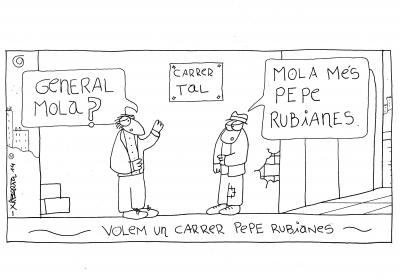 GENERAL
MOLA?
CARRER
TAL
MOLA MÉS
PEPE
RUBIANES.
VOLEM UN CARRER PEPE RUBIANES